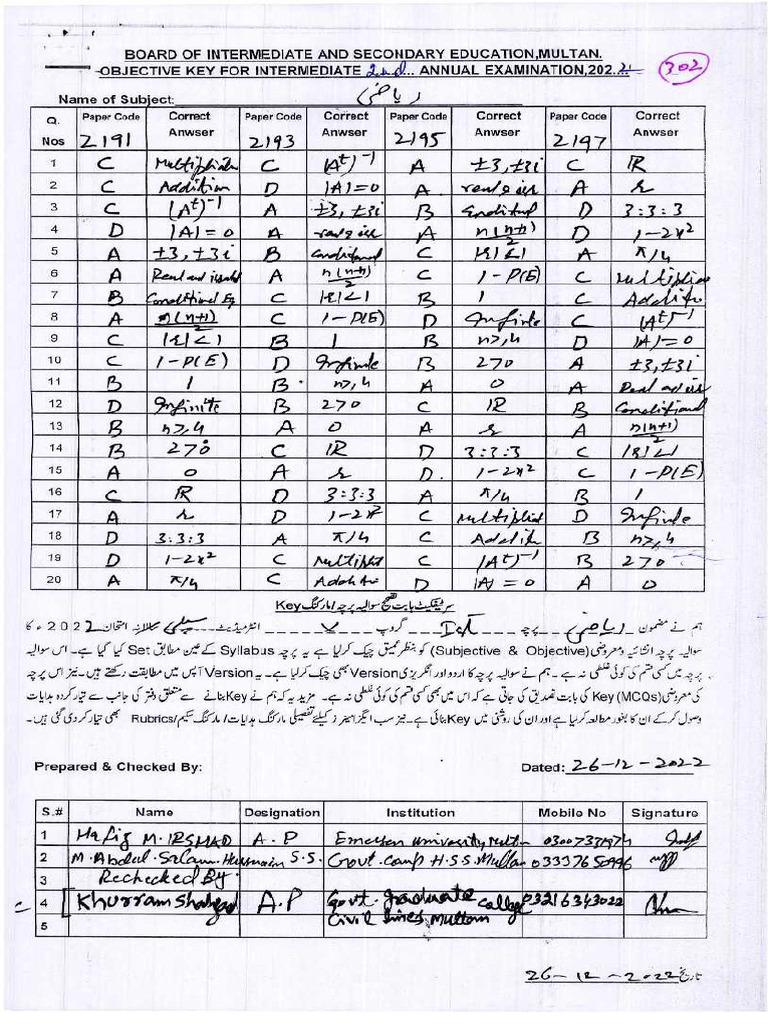 BOARD OF INTERMEDIATE AND SECONDARY EDUCATION,MULTAN.
OBJECTIVE KEY FOR INTERMEDIATE 2nd ANNUAL EXAMINATION,2022
302
Name of Subject: ریاضی
Q. Nos Paper Code 2191 Correct Anwser Paper Code 2193 Correct Anwser Paper Code 2195 Correct Anwser Paper Code 2197 Correct Anwser
1 C C (Aᵗ)⁻¹ A ±3, ±3i C ℝ
2 C Addition D |A|=0 A A r
3 C (Aᵗ)⁻¹ A ±3, ±3i B D 3:3:3
4 D |A|=0 A A n(n+1)/2 D 1-2x²
5 A ±3, ±3i B Conditional C |r|<1 A π/4
6 A A n(n+1)/2 C 1-P(E) C
7 B Conditional Eq C |r|<1 B 1 C
8 A n(n+1)/2 C 1-P(E) D Infinite C (Aᵗ)⁻¹
9 C |r|<1 B 1 B n>,4 D |A|=0
10 C 1-P(E) D Infinite B 270 A ±3, ±3i
11 B 1 B n>,4 A 0 A
12 D Infinite B 270 C ℝ B Conditional
13 B n>,4 A 0 A r A n(n+1)/2
14 B 270 C ℝ D 3:3:3 C |r|<1
15 A 0 A r D. 1-2x² C 1-P(E)
16 C ℝ D 3:3:3 A π/4 B 1
17 A r D 1-2x² C D Infinite
18 D 3:3:3 A π/4 C B n>,4
19 D 1-2x² C C (Aᵗ)⁻¹ B 270
20 A π/4 C D |A|=0 A 0
سرٹیفکیٹ بابت تصحیح سوالیہ پرچہ/مارکنگ Key
ہم نے مضمون ریاضی پرچہ گروپ انٹرمیڈیٹ سپلی سالانہ امتحان 2022ء کا
سوالیہ پرچہ انشائیہ ومعروضی (Subjective & Objective) کو بنظر عمیق چیک کرلیا ہے یہ پرچہ Syllabus کے عین مطابق Set کیا گیا ہے۔ اس سوالیہ
پرچہ میں کسی قسم کی کوئی غلطی نہ ہے۔ ہم نے سوالیہ پرچہ کا اردو اور انگریزی Version بھی چیک کرلیا ہے۔ یہ Version آپس میں مطابقت رکھتے ہیں۔ نیز اس پرچہ
کی معروضی (MCQs) Key کی بابت تصدیق کی جاتی ہے کہ اس میں بھی کسی قسم کی کوئی غلطی نہ ہے۔ مزید یہ کہ ہم نے Key بنانے سے متعلق دفتر کی جانب سے تیار کردہ ہدایات
وصول کرکے ان کا بغور مطالعہ کرلیا ہے اور ان کی روشنی میں Key بنائی ہے۔ نیز سب ایگزامینرز کیلئے تفصیلی مارکنگ ہدایات/مارکنگ سکیم/Rubrics بھی تیار کردی گئی ہیں۔
Prepared & Checked By:
Dated: 26-12-2022
S.# Name Designation Institution Mobile No Signature
1 Hafiz M. IRSHAD A.P Emerson University Multan
2 M. Abdul Salam S.S. Govt. Comp H.S.S Multan
3 Rechecked By
4 Khurram Shahzad A.P Govt. graduate college 03216343022
5 Civil Lines Multan
26-12-2022 تاریخ